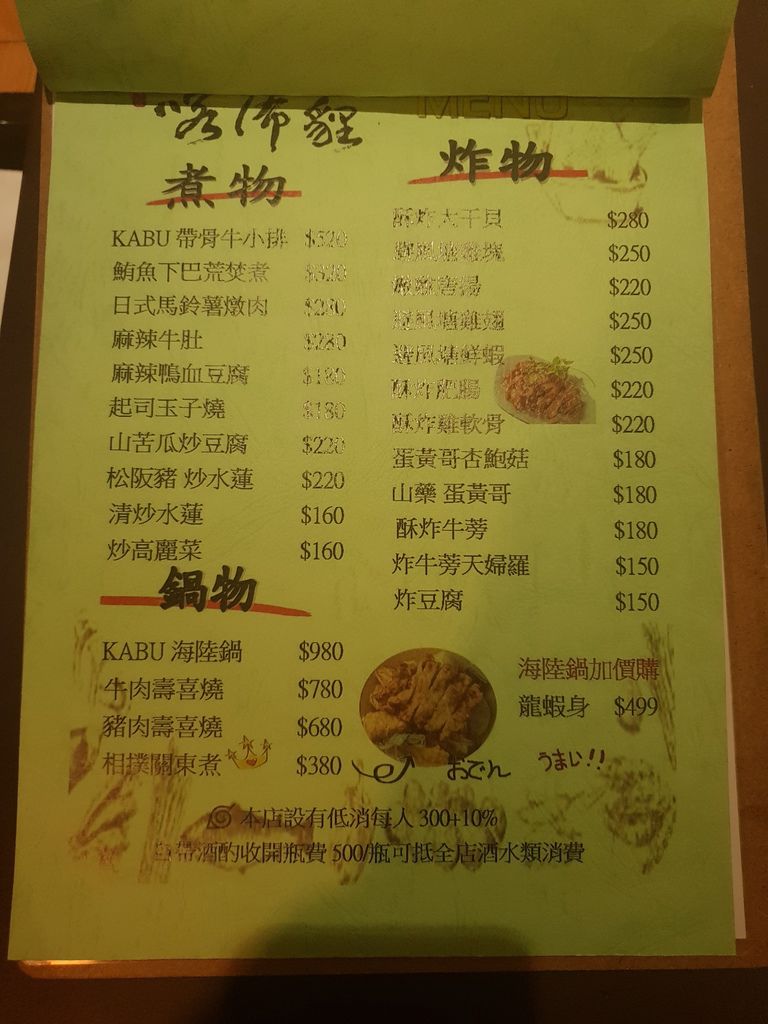 MENU
煮物
KABU 帶骨牛小排 $320
鮪魚下巴荒焚煮 $320
日式馬鈴薯燉肉 $280
麻辣牛肚 $280
麻辣鴨血豆腐 $180
起司玉子燒 $180
山苦瓜炒豆腐 $220
松阪豬 炒水蓮 $220
清炒水蓮 $160
炒高麗菜 $160
炸物
酥炸大干貝 $280
$250
$220
避風塘雞翅 $250
避風塘鮮蝦 $250
酥炸肥腸 $220
酥炸雞軟骨 $220
蛋黃哥杏鮑菇 $180
山藥 蛋黃哥 $180
酥炸牛蒡 $180
炸牛蒡天婦羅 $150
炸豆腐 $150
鍋物
KABU 海陸鍋 $980
牛肉壽喜燒 $780
豬肉壽喜燒 $680
相撲關東煮 $380
おでん
うまい!!
海陸鍋加價購
龍蝦身 $499
本店設有低消每人 300+10%
自帶酒酌收開瓶費 500/瓶可抵全店酒水類消費